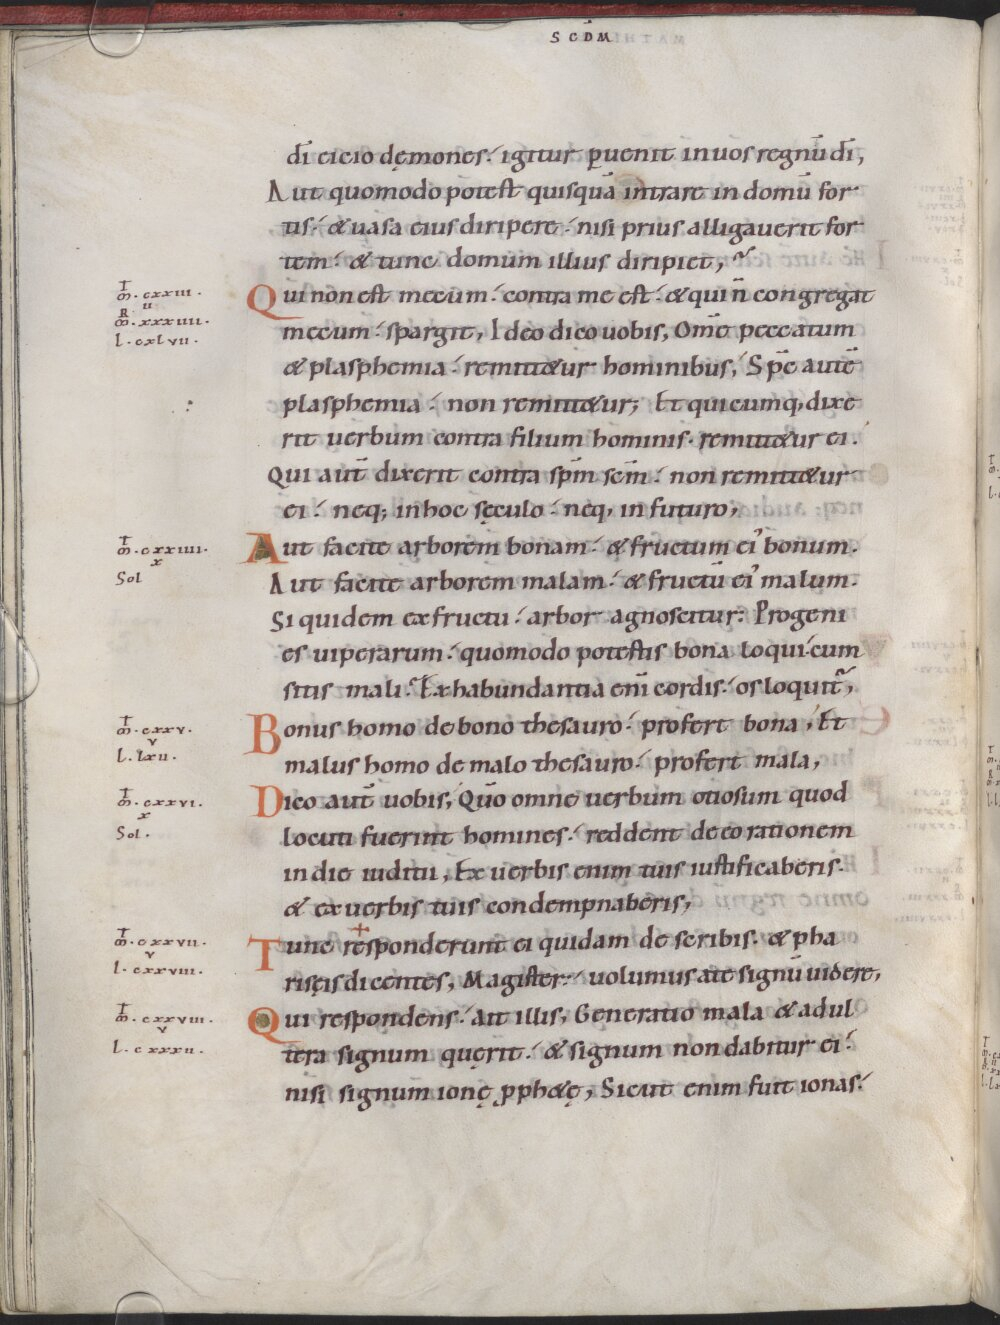 SCDM̄
dī eicio dęmones. igitur puenit inuos regnū dī,
Aut quomodo potest quisquā intrare in domū for
tis. & uasa eius diripere. nisi prius alligauerit for
tem. & tunc domum illius diripiet,
m̄. cxxiii.
ii
R̄. xxxiiii.
l. cxlvii.
Qui non est mecum. contra me est. & qui n̄ congregat
mecum. spargit, Ideo dico uobis, Om̄e peccatum
& plasphemia. remitt&ur hominibus, Sp̄c autē
plasphemia. non remitt&ur; Et quicumq, dixe
rit uerbum contra filium hominis. remitt&ur ei.
Qui aut̄ dixerit contra sp̄m sc̄m. non remitt&ur
ei. neq; inhoc sęculo. neq, in futuro,
m̄. cxxiiii.
x
Sol
Aut facite arborem bonam. & fructum ei' bonum.
Aut facite arborem malam. & fructū ei' malum.
Si quidem exfructu. arbor agnoscitur. Progeni
es uiperarum. quomodo potestis bona loqui. cum
sitis mali. Exhabundantia eni᷑ cordis. os loquit᷑,
m̄. cxxv.
v
l. lxii.
Bonus homo debono thesauro. profert bona, Et
malus homo de malo thesauro. profert mala,
m̄. cxxvi.
x
Sol.
Dico aut̄ uobis, Qūo omne uerbum otiosum quod
locuti fuerint homines. reddent deeo rationem
indie iuditii, Ex uerbis enim tuis iustificaberis.
& exuerbis tuis condempnaberis,
m̄. cxxvii.
v
l. cxxviii.
Tunc responderunt ei quidam de scribis. & pha
risęis dicentes, Magister. uolumus ate signū uidere,
m̄. cxxviii.
v
l. cxxxii.
Qui respondens. Ait illis, Generatio mala & adul
tera signum quęrit. & signum non dabitur ei.
nisi signum ionę pph&ę, Sicut enim fuit ionas.